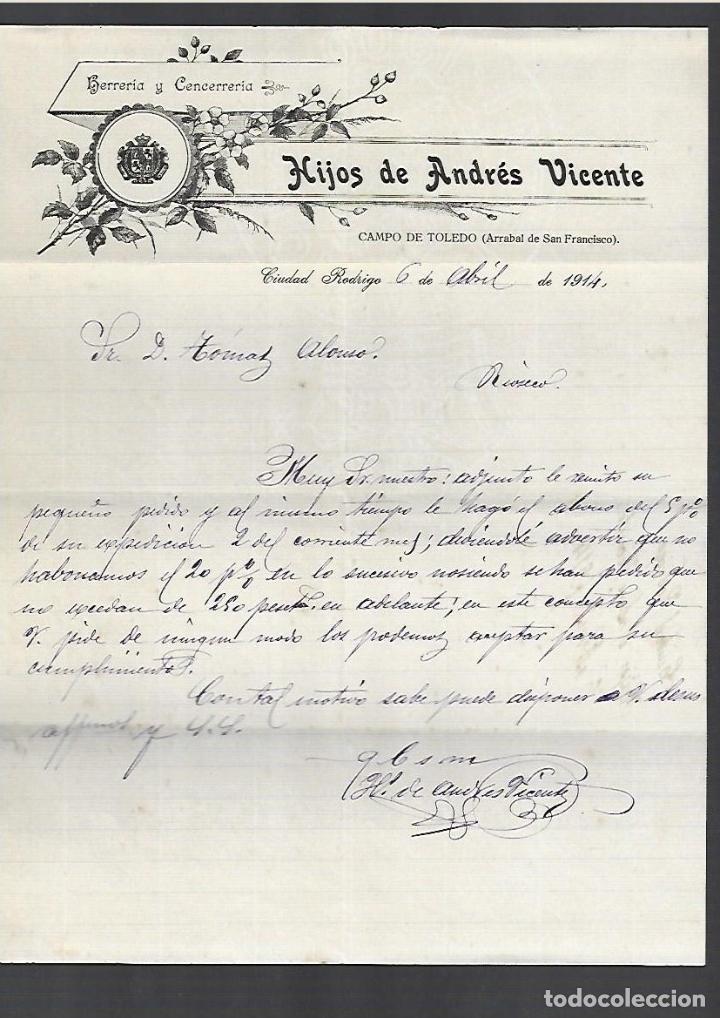 Herrería y Cencerrería
Hijos de Andrés Vicente
CAMPO DE TOLEDO (Arrabal de San Francisco).
Ciudad Rodrigo 6 de Abril de 1914.
Sr. D. Tómas Alonso.
Rioseco.
Muy Sr. nuestro: adjunto le remito su
pequeño pedido y al mismo tiempo le hagó el abono del 5 p%
de su expedición 2 del corriente mes; deviendole advertir que no
habonamos el 20 p% en lo sucesivo nosiendo se han pedido que
no excedan de 250 pesetas. en adelante; en este concepto que
V. pide de ningun modo los podemos aceptar para su
cumplimiento.
Contal motivo sabe puede disponer a V. de sus
affmos. y S. S.
q b s m
Hs. de Andres Vicente
todocoleccion